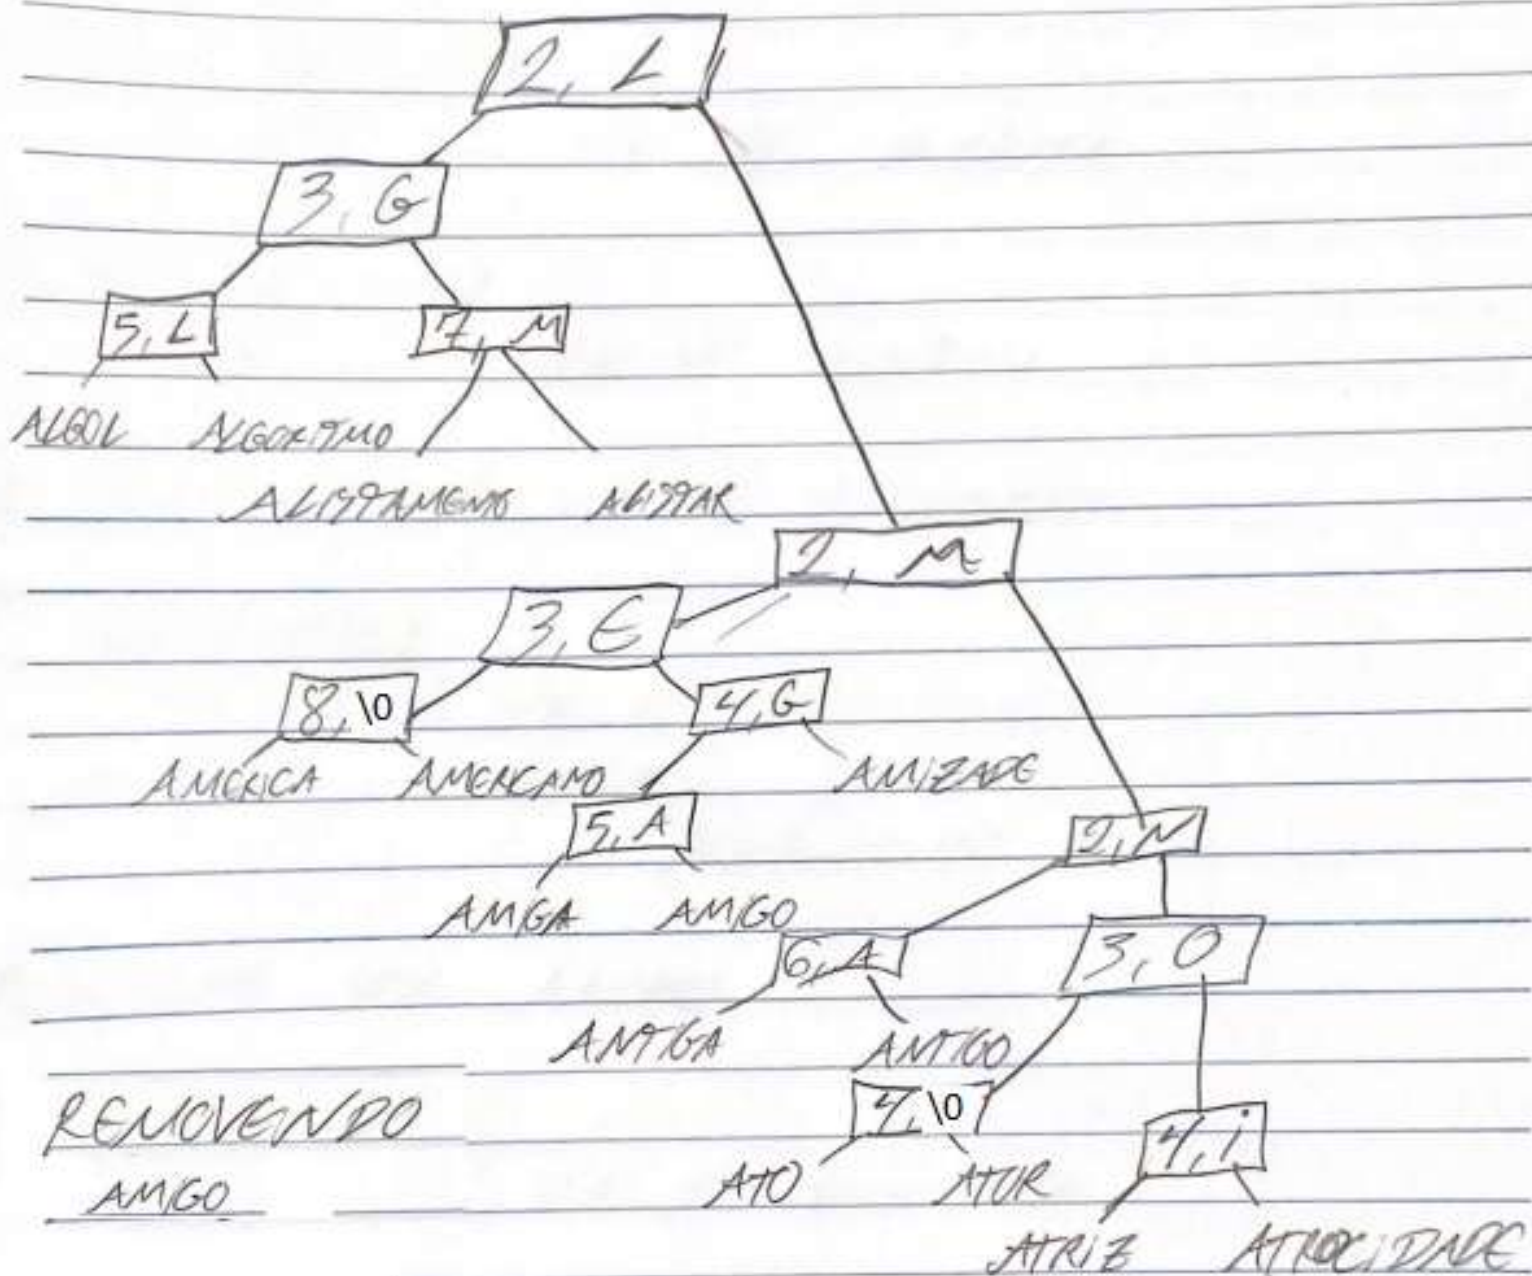 2, L
3, G
5, L 7, M
ALGOL ALGORITMO
ALISTAMENTO ALISTAR
2, M
3, E
8, \0 4, G
AMERICA AMERICANO AMIZADE
5, A 2, N
AMIGA AMIGO
6, A 3, O
ANTIGA ANTIGO
REMOVENDO 4, \0 4, i
AMIGO ATO ATOR
ATRIZ ATROCIDADE